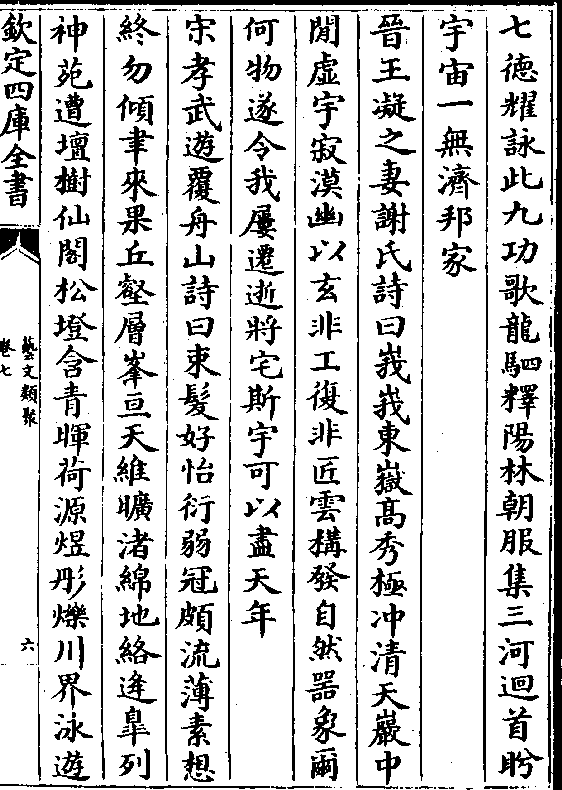 七德耀詠此九功歌龍駟釋陽林朝服集三河迴首眄
宇宙一無濟邦家
晉王凝之妻謝氏詩曰峩峩東嶽髙秀極冲清天巖中
閒虚宇寂漠幽以玄非工復非匠雲構發自然器象爾
何物遂令我屢遷逝將宅斯宇可以盡天年
宋孝武遊覆舟山詩曰束髮好怡衍弱冠頗流薄素想
終勿傾聿來果丘壑層峯亘天維曠渚綿地絡逄臯列
神苑遭壇樹仙閣松墱含青暉荷源煜彤爍川界泳遊
欽定四庫全書
藝文類聚
卷七
六